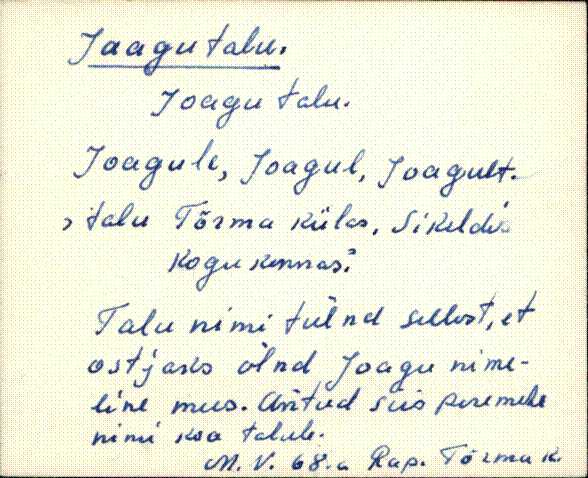 Jaagu talu.
Joagu talu.
Joagule, Joagul, Joagult.
, talu Tõrma külas, Sikeldis
kogukonnas.
Talu nimi tülnd sellest, et
ostjaks õlnd Joagu nime-
line mus. Antud siis peremehe
nimi koa talule.
M. V. 68. a Rap. Tõrma k.